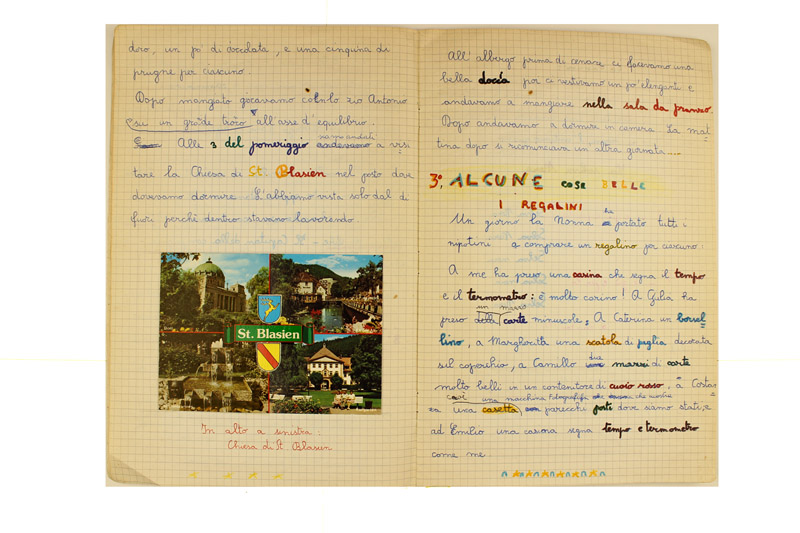 doro, un po' di cioccolata, e una cinquina di
prugne per ciascuno.
Dopo mangiato giocavamo col lo zio Antonio
su un grande tronco all'asse d'equilibrio.
Alle 3 del pomeriggio siamo andati a visi
tare la Chiesa di St. Blasien nel posto dove
dovevamo dormire. L'abbiamo vista solo dal di
fuori perché dentro stavano lavorando.
St. Blasien
In alto a sinistra:
Chiesa di St Blasien
All'albergo prima di cenare ci facevamo una
bella doccia poi ci vestivamo un po' eleganti e
andavamo a mangiare nella sala da pranzo.
Dopo andavamo a dormire in camera. La mat
tina dopo si ricominciava un'altra giornata.....
3°, ALCUNE COSE BELLE
I REGALINI
Un giorno la Nonna ha portato tutti i
nipotini a comprare un regalino per ciascuno:
A me ha preso una casina che segna il tempo
e il termometro: è molto carino! A Gilia ha
preso un mazzo carte minuscole, A Caterina un borsel
lino, a Margherita una scatola di paglia decorata
sul coperchio, a Camillo due mazzi di carte
molto belli in un contenitore di cuoio rosso, a Costan
za una macchina fotografica casetta parecchi posti dove siamo stati, e
ad Emilio una casina segna tempo e termometro
come me